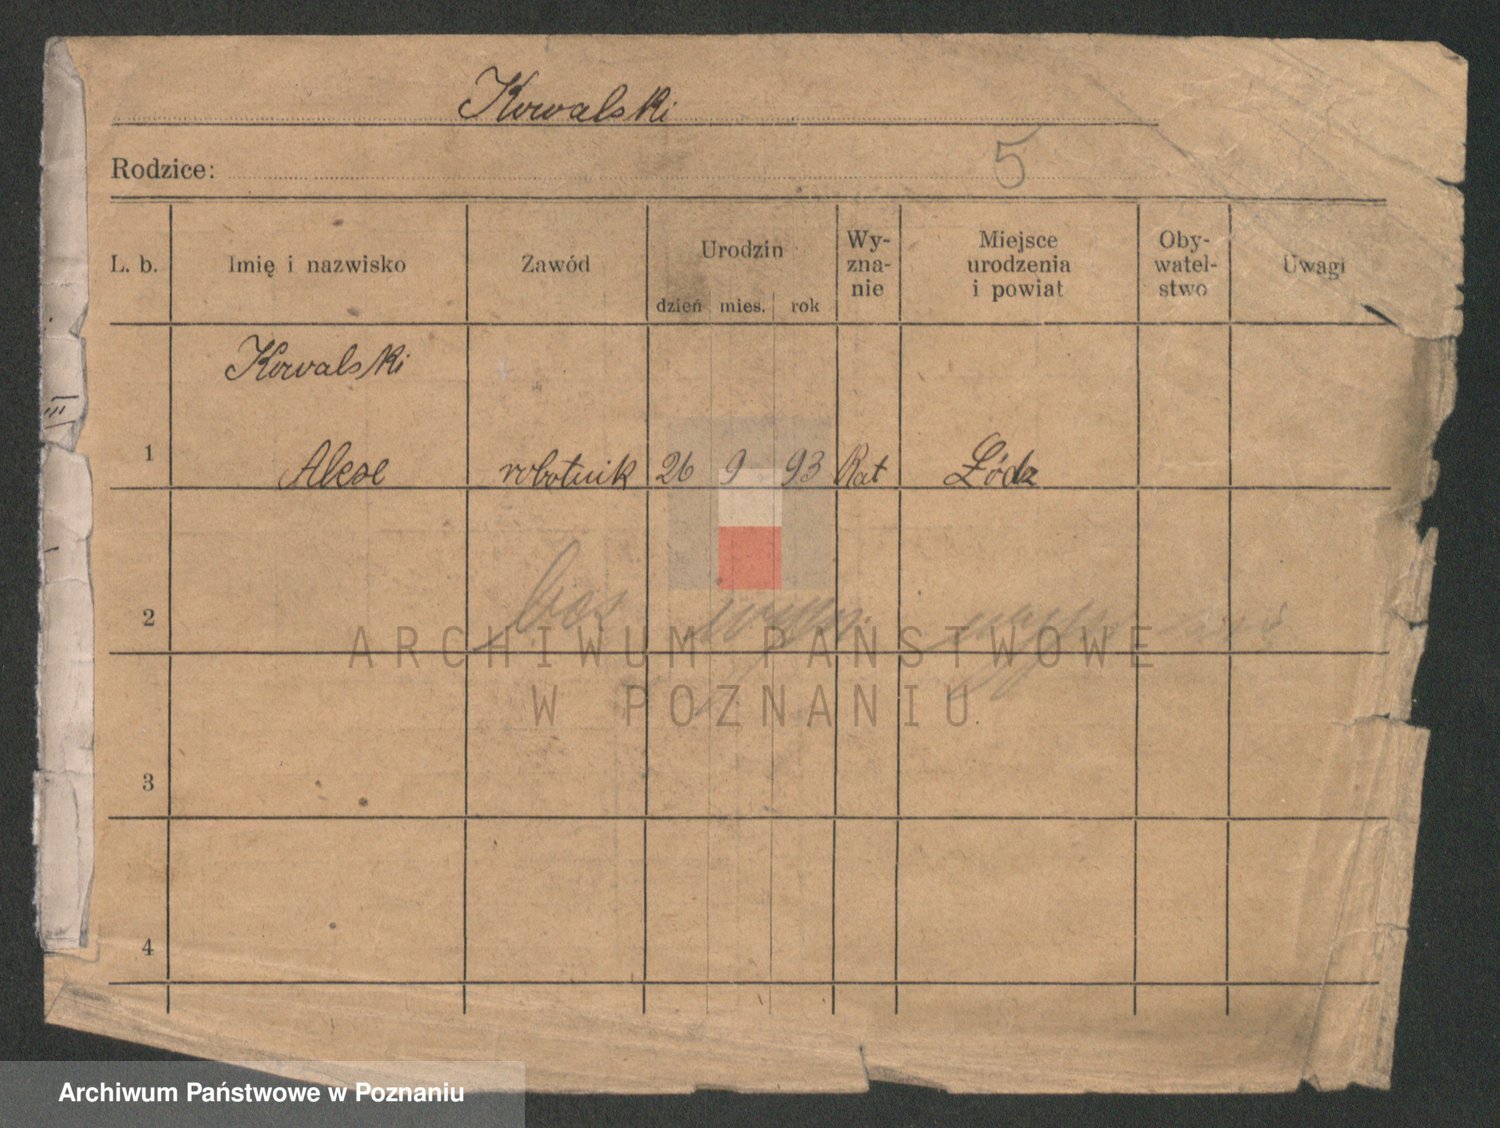 Kowalski
Rodzice:
5
L. b. Imię i nazwisko Zawód Urodzin dzień mies. rok Wy-zna-nie Miejsce urodzenia i powiat Oby-watel-stwo Uwagi
Kowalski
1 robotnik 26 9 93 Kat Łódz
III
2
ARCHIWUM PAŃSTWOWE
W POZNANIU
3
4
Archiwum Państwowe w Poznaniu